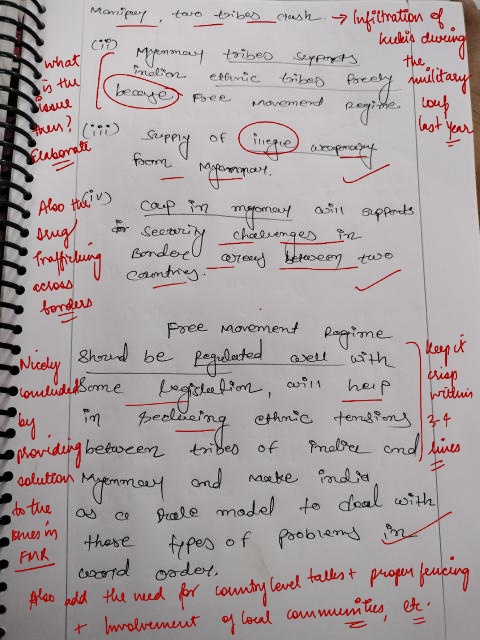 Manipur, two tribes clash. → Infiltration of
kukis during
the
military
coup
last year
what
is the
issue
then?
Elaborate
(ii) Myenmay tribes supports
indian ethnic tribes freely
because Free Movement Regime
(iii) Supply of illegue weaponary
from Myenmay.
Also the
drug
trafficking
across
borders
(iv) Coup in myomay will supports
Security challenges in
Border areas between two
countries.
Free Movement Regime
Should be regulated well with
Some legistation, will help
in reducing ethnic tensions
between tribes of india and
Myenmay and make india
as a role model to deal with
these types of problems in
word order.
Nicely
concluded
by
providing
solution
to the
issues in
FMR
Keep it
crisp
within
3-4
lines
Also add the need for country level talks + proper fencing
+ Involvement of local communities, etc.